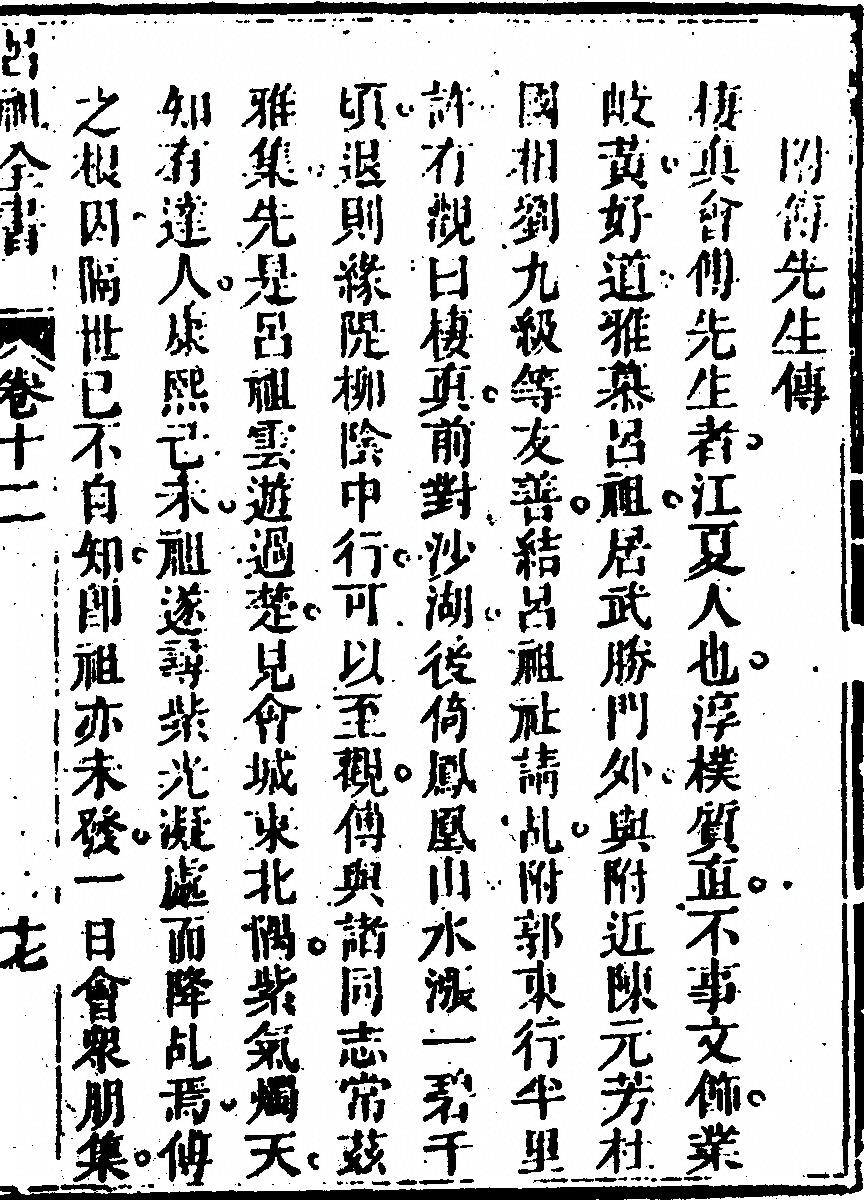 附傅先生傳
棲真會傅先生者江夏人也淳樸質直不事文飾業
岐黃好道雅慕呂祖居武勝門外與附近陳元芳杜
國相劉九級等友善結呂祖社請乩附郭東行半里
許有觀曰棲真前對沙湖後倚鳳凰山水漲一碧千
頃退則緣隄柳陰中行可以至觀傅與諸同志常茲
雅集先是呂祖雲遊過楚見會城東北隅紫氣燭天
知有達人康熙己未祖遂尋紫光凝處而降乩焉傅
之根因隔世已不自知即祖亦未發一日會眾朋集
呂祖全書
卷十二
十七